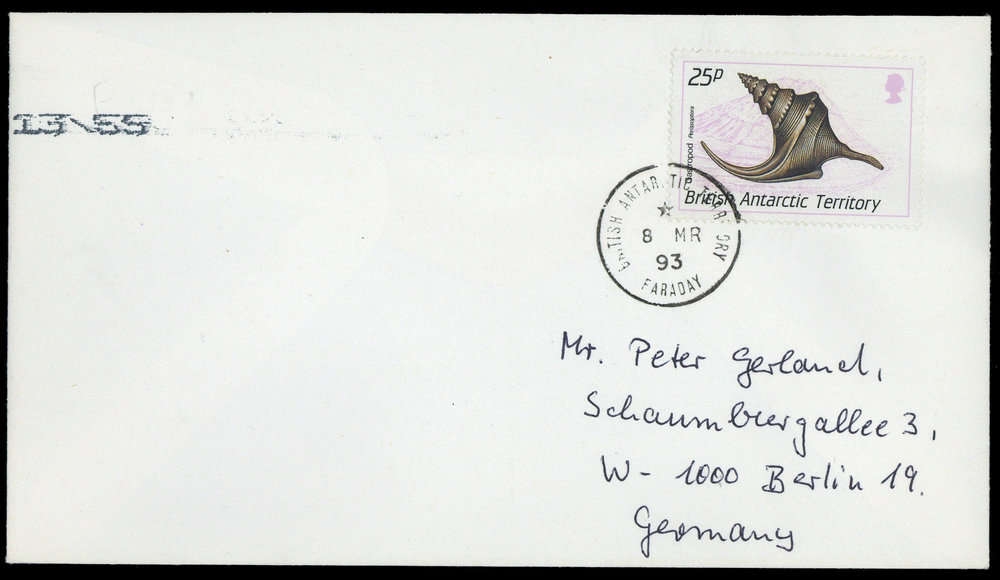 13\55
25p
Gastropod Perissoptera
British Antarctic Territory
BRITISH ANTARCTIC TERRITORY
8 MR
93
FARADAY
Mr. Peter Gerland,
Schaumburgallee 3,
W- 1000 Berlin 19.
Germany